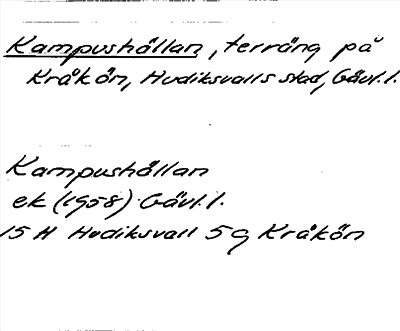 Kampushällan, terräng på
Kråkön, Hudiksvalls stad, Gävl. l.
Kampushällan
ek (1958) Gävl. l.
15 H Hudiksvall 5 g Kråkön